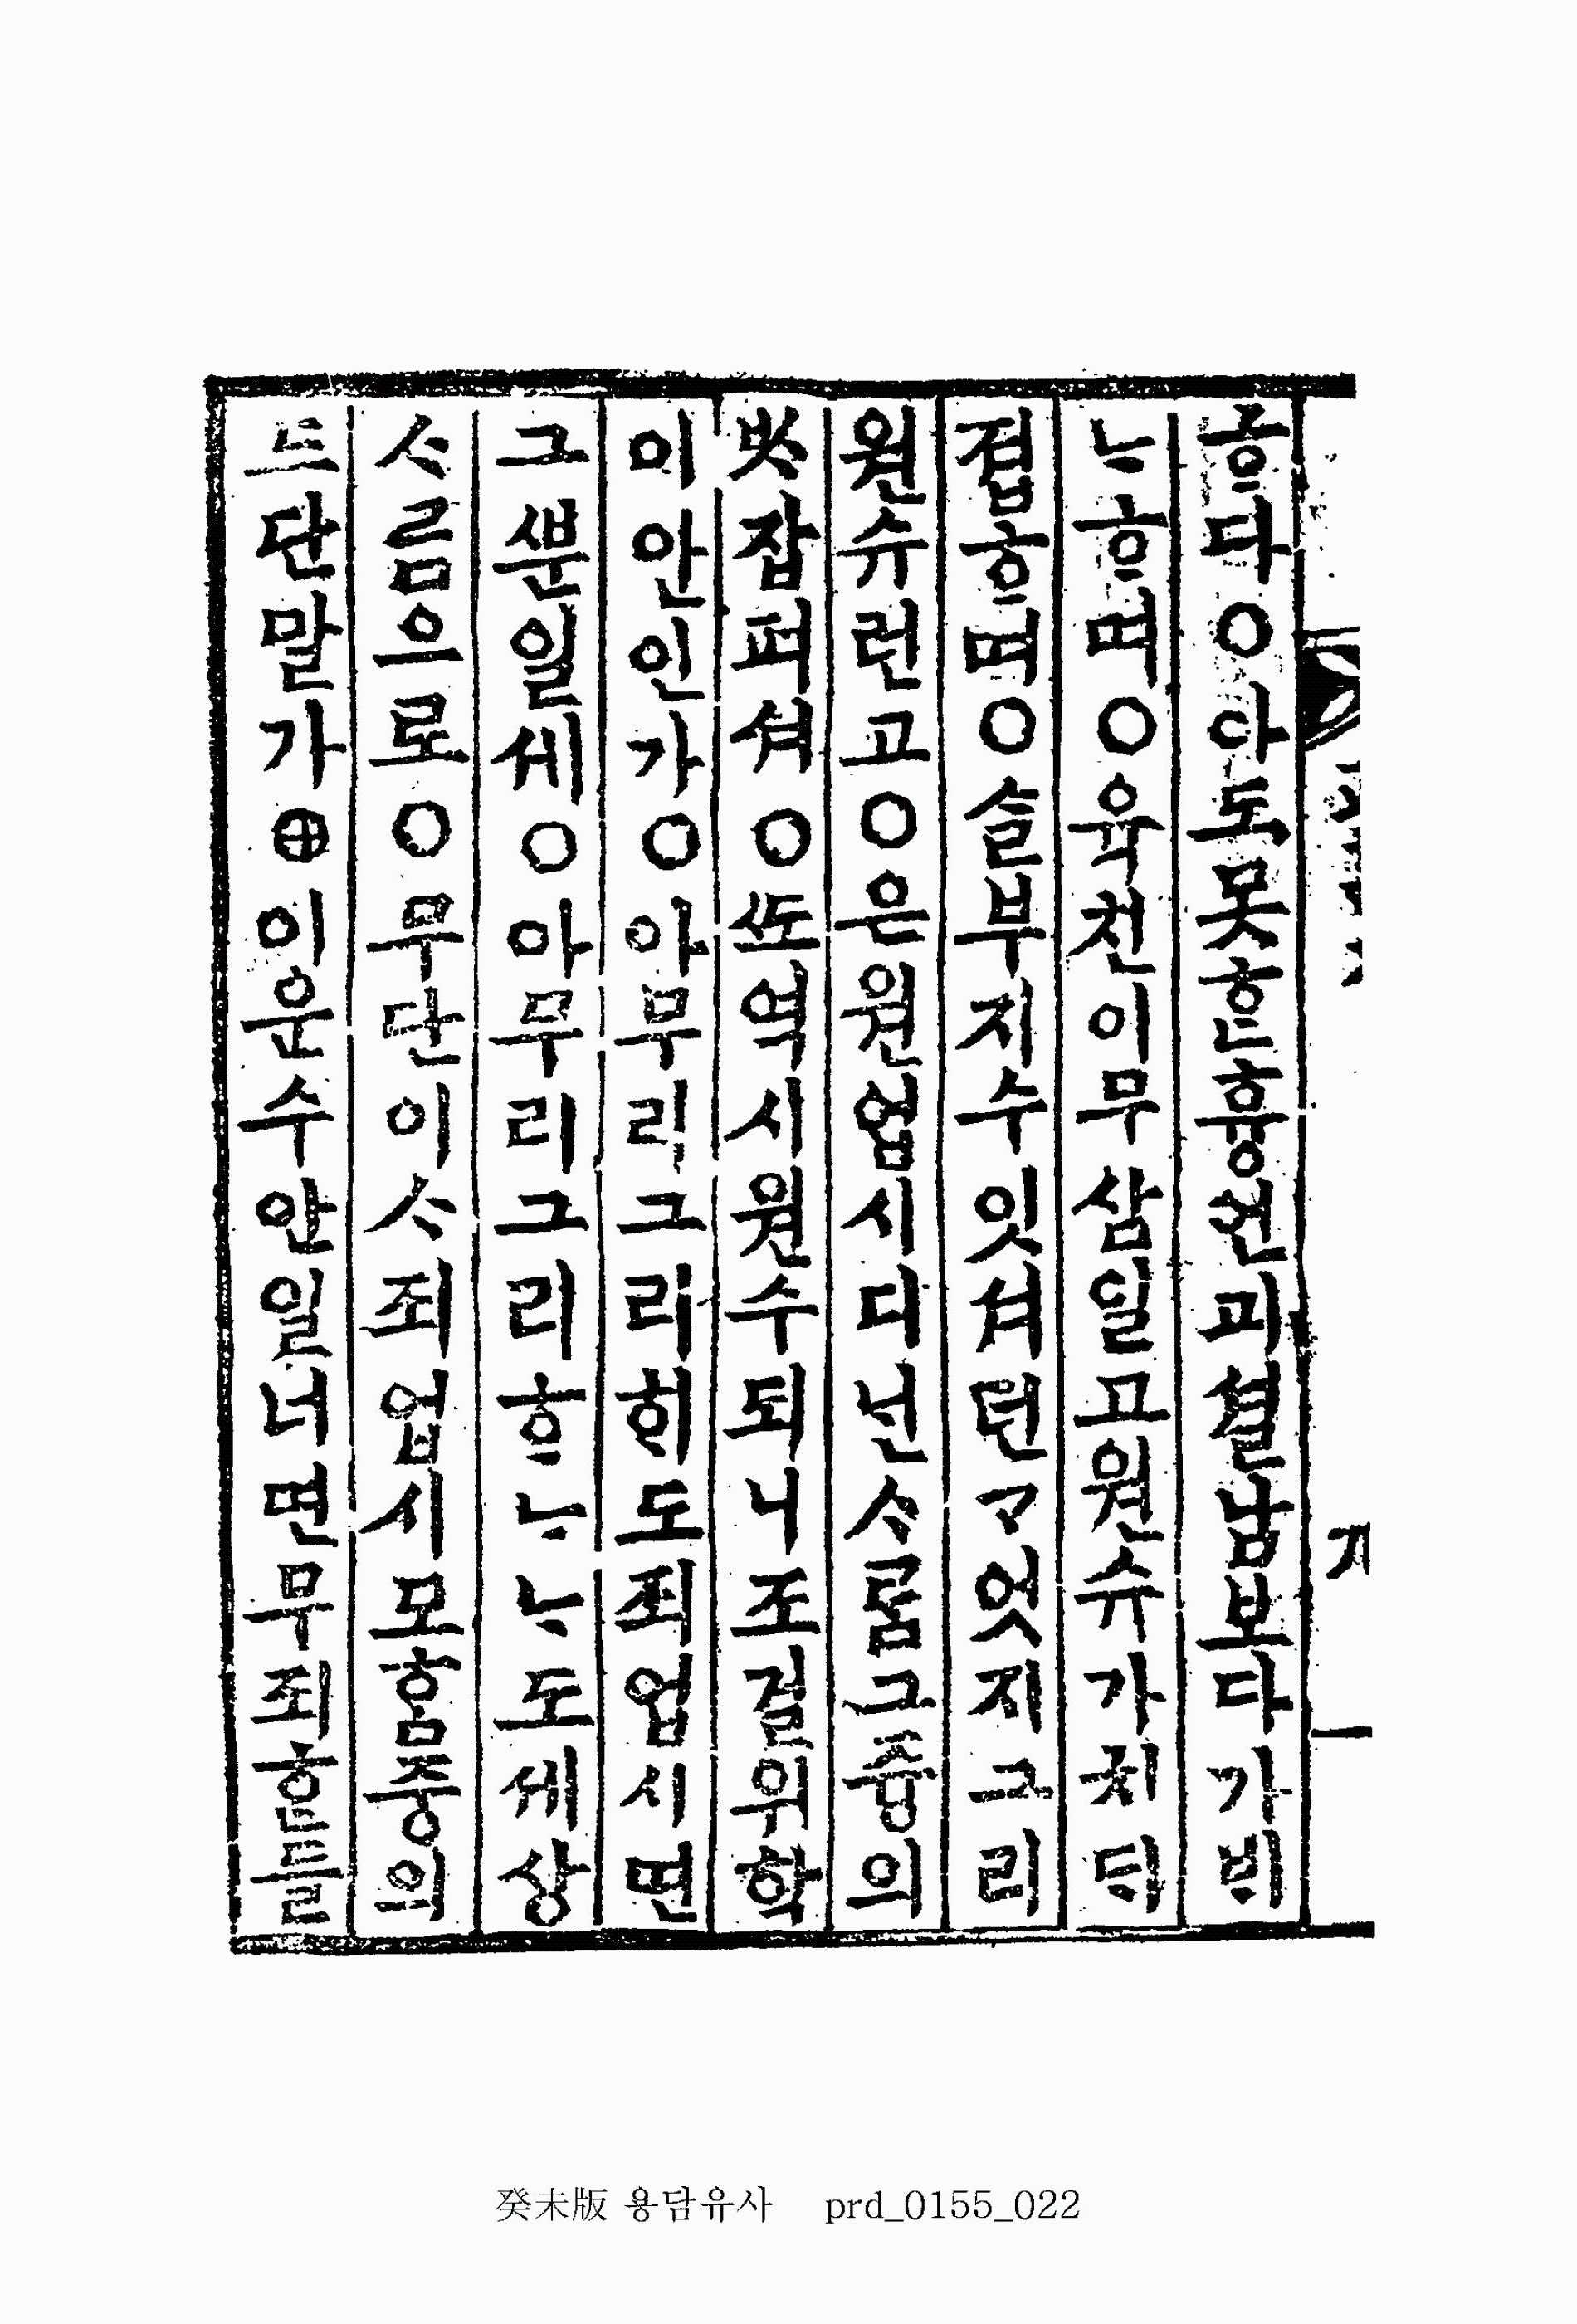 ᄒᆞ다○아도못ᄒᆞᆫ흉언괴셜남보다가ᄇᆡ
ᄂᆞᄒᆞ며○육천이무삼일고원슈가치ᄃᆡ
졉ᄒᆞ며○슬부지수잇셔던ᄀᆞ엇지그리
원슈런고○은원업시디넌ᄉᆞ롬그즁의
ᄡᆞ잡펴셔○ᄯᅩ역시원수되니조걸위학
이안인가○아무리그리ᄒᆡ도죄업시면
그ᄲᅮᆫ일세○아무리그리ᄒᆞᄂᆞᄂᆞ도세상
ᄉᆞ름으로○무단이ᄉᆞ죄업시모홈중의
드단말가⊕이운수안일너면무죄ᄒᆞᆫ들
癸未版 용담유사 prd_0155_022